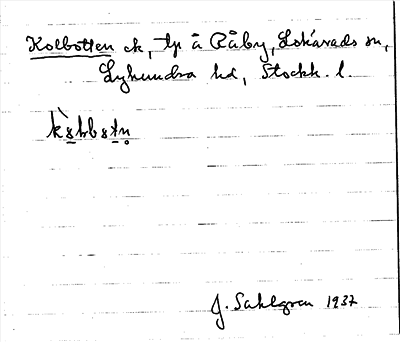 Kolbotten ck, tp å Råby, Lohärads sn,
Lyhundra hd, Stockh. l.
J. Sahlgren 1937